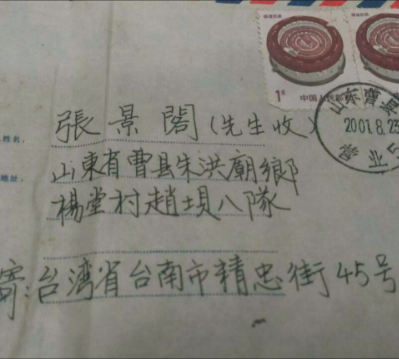 1元
中国人民邮政
山东曹
2001.8.25
姓名,
張景閣(先生收)
地址,
山東省曹县朱洪廟鄉
楊堂村趙垻八隊
寄:台湾省台南市精忠街45号